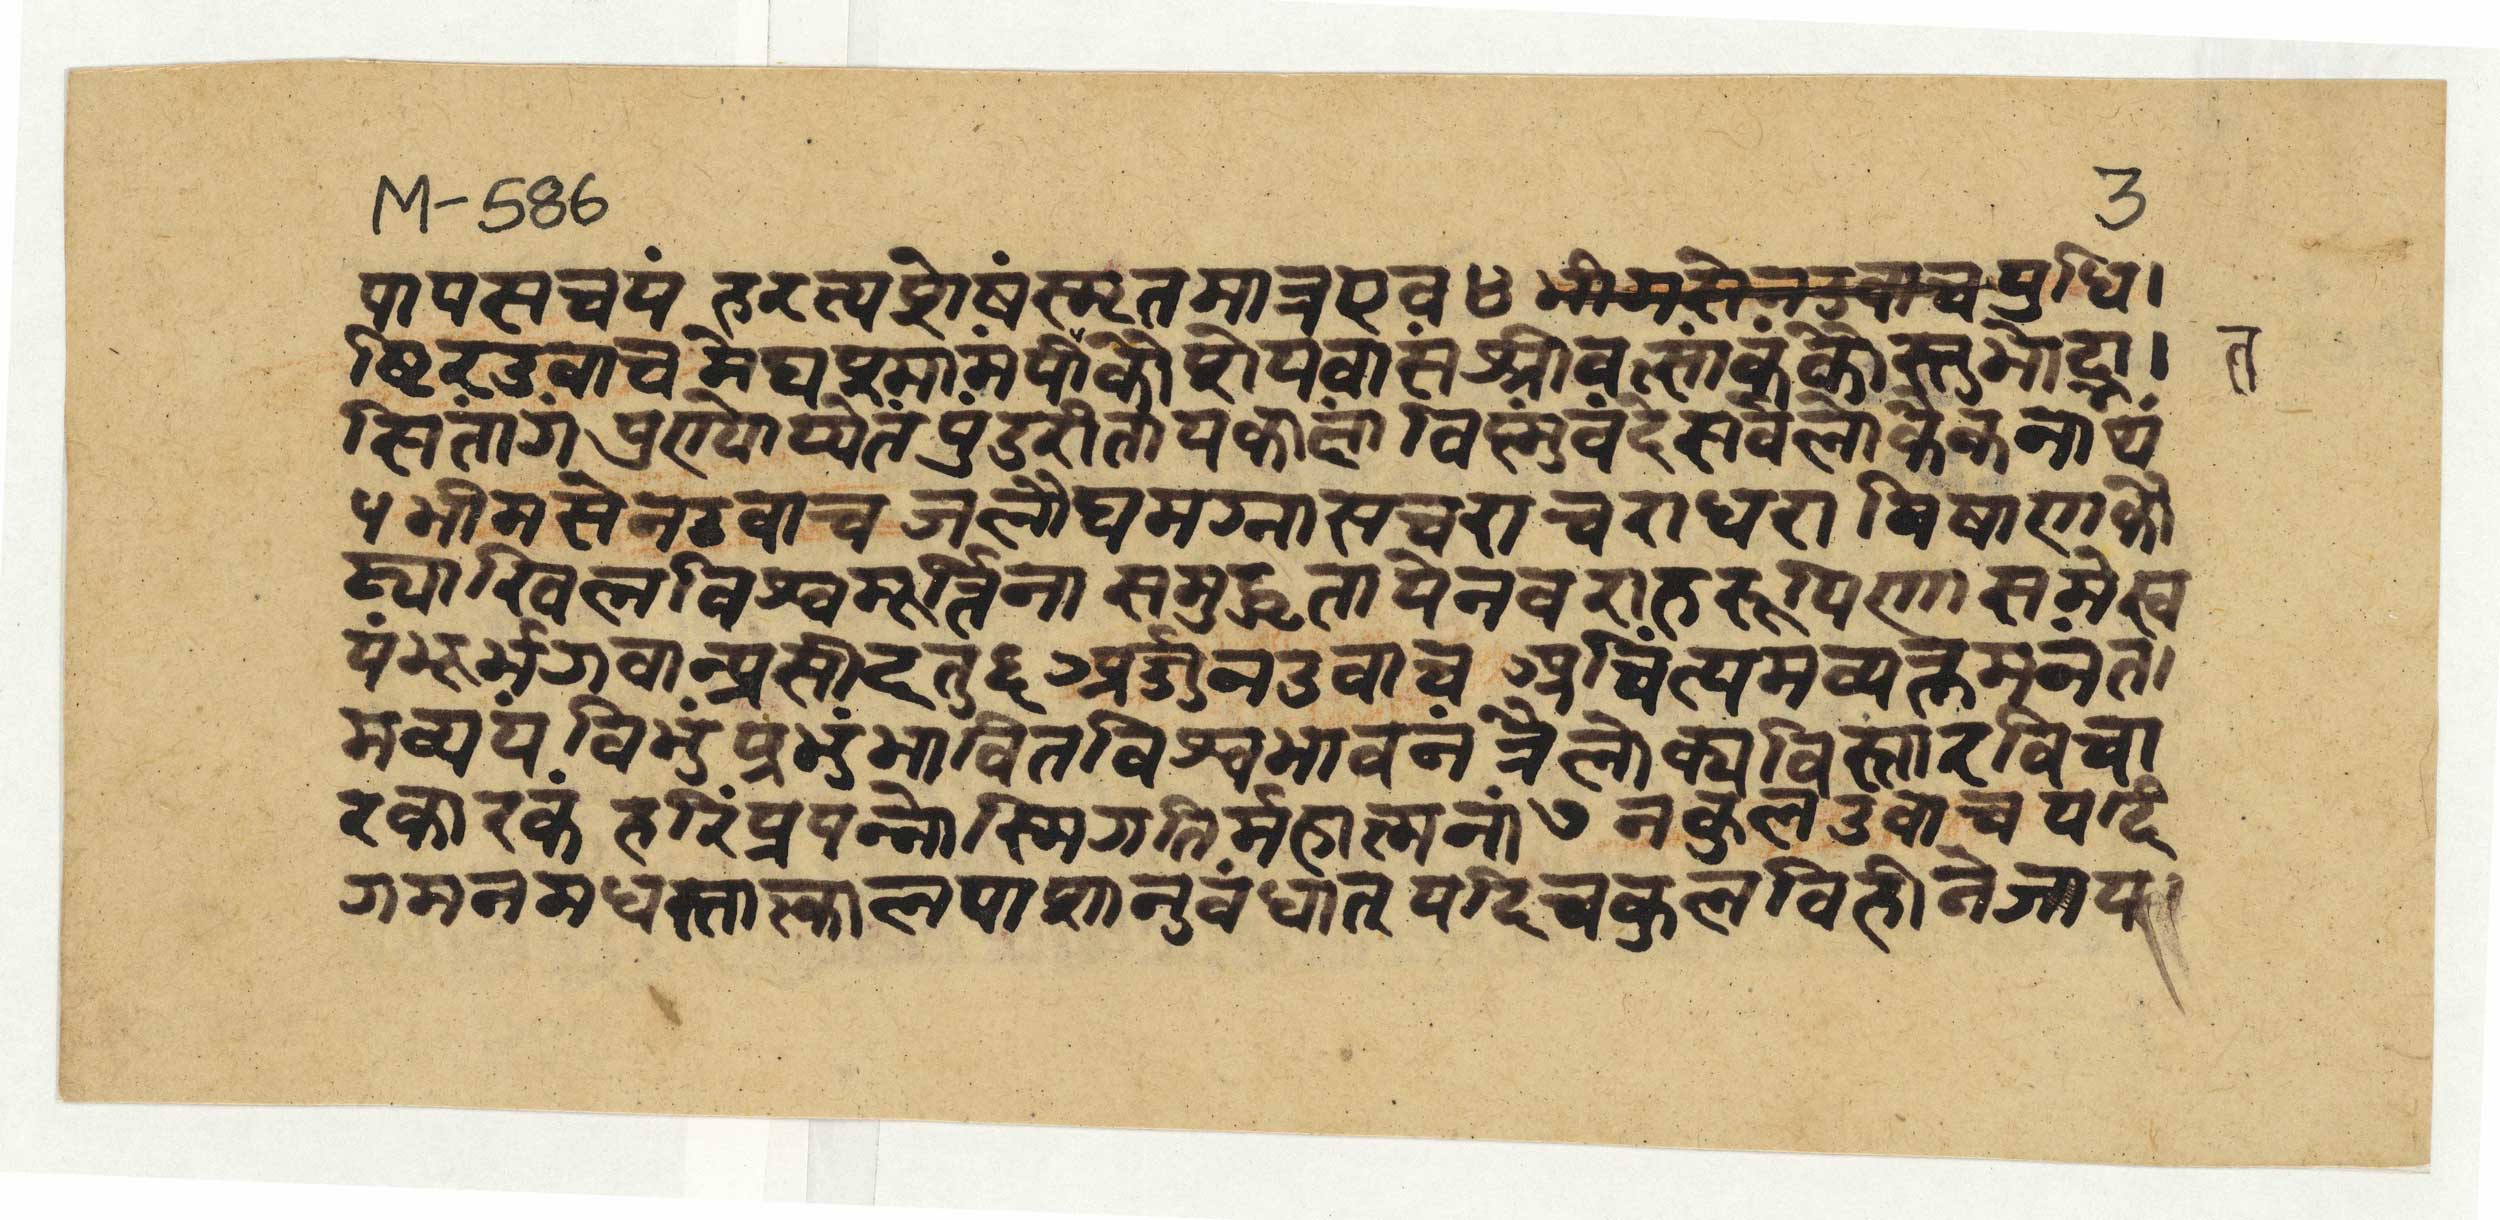 M-586
3
पापसच्चयं हरत्यशेषंस्मृतमात्रएव ४ भीमसेनउवाच युधि।
ष्ठिरउवाच मेघश्यामंपीतकौशेयवासंश्रीवत्सांकंकौस्तुभोद्भा।
त
सितांगं पुण्योप्येतंपुंडरीतायकाक्षं विष्णुंवंदेसर्वलोकैकनाथं
५ भीमसेनउवाच जलौघमग्नासचराचराधरा विषाणको
ट्याखिलविश्वमूर्त्तिना समुद्धृतायेनवराहरूपिणा समेस्व
यंभूर्भगवान्प्रसीदतु ६ अर्ज्जुनउवाच अचिंत्यमव्यक्तमनंत।
मव्ययं विभुंप्रभुंभावितविश्वभावनं त्रैलोक्यविस्तारविचा
रकारकं हरिंप्रपन्नोस्मिगतिर्महात्मनां ७ नकुलउवाच यदि
गमनमधस्तात्कालपाशानुवंधात् यदिचकुलविहीनेजाय